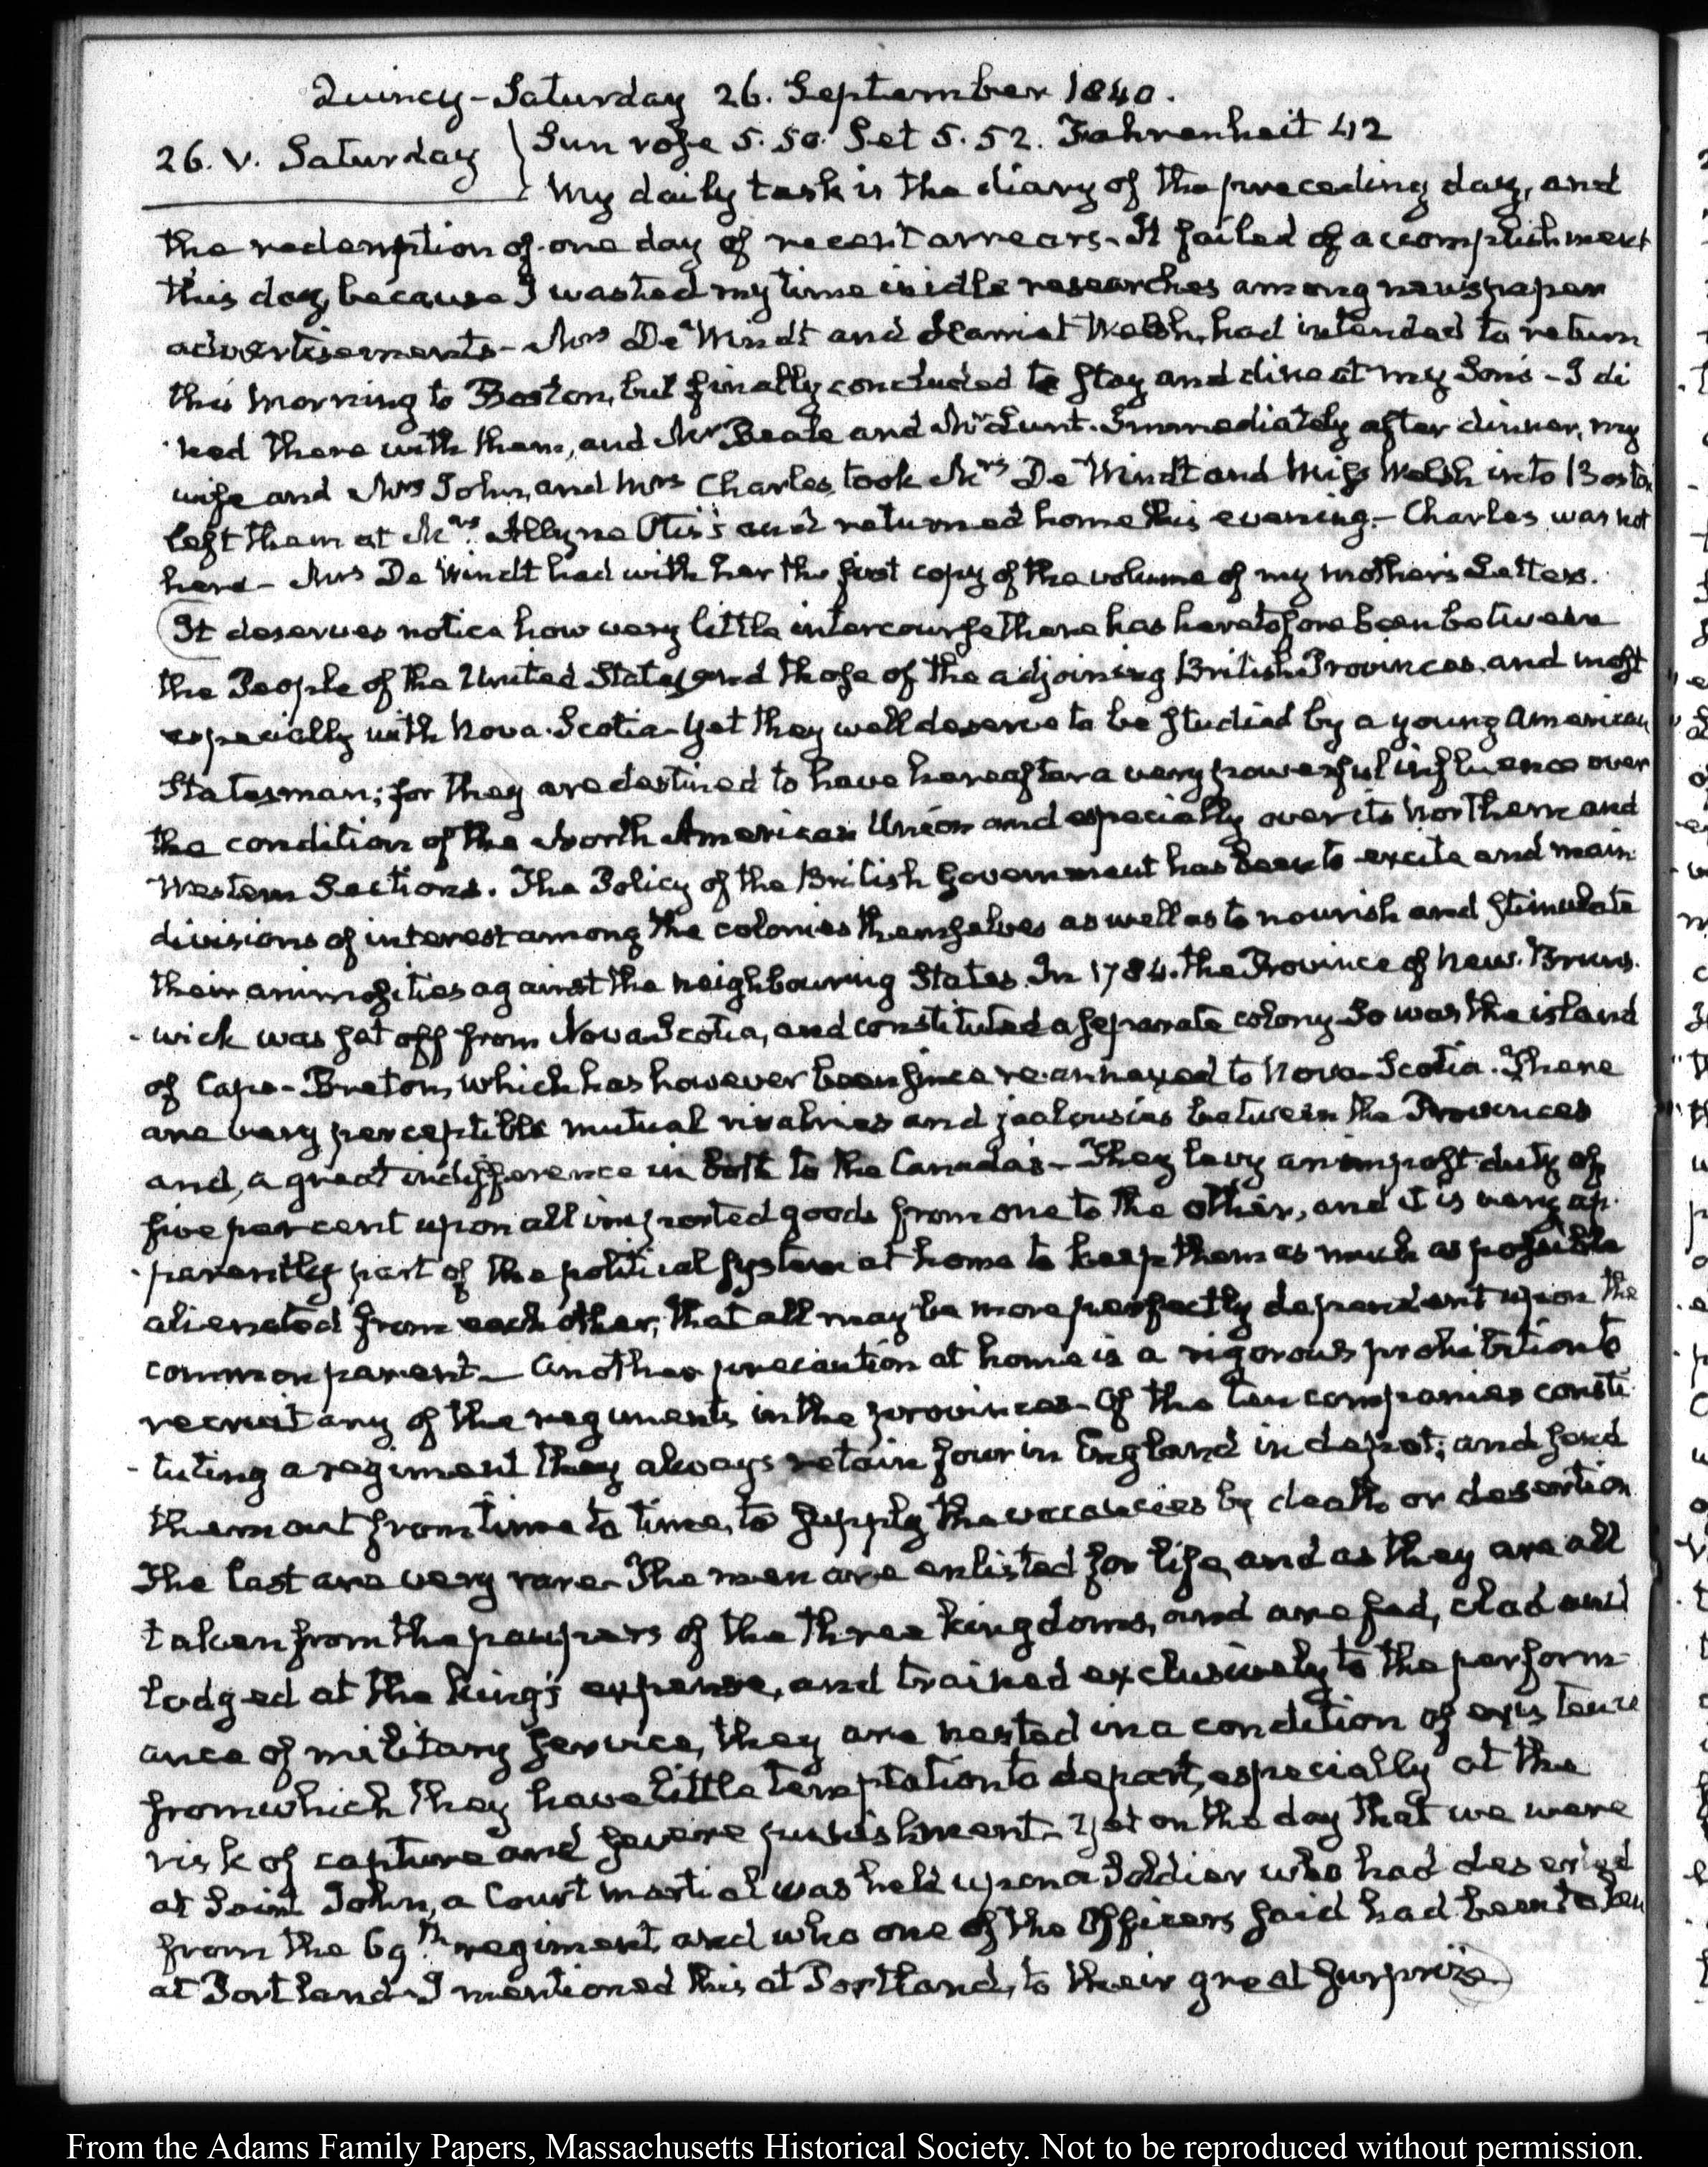 Quincy - Saturday 26. September 1840.
26. V. Saturday } Sun rose 5.50. Set 5.52. Fahrenheit 42
My daily task is the diary of the preceding day, and
the redemption of one day of recent arrears. It failed of accomplishment
this day, because I wasted my time in idle researches among newspaper
advertisements - Mrs De Windt and Harriet Welsh, had intended to return
this morning to Boston, but finally concluded to stay and dine at my Son's - I di
ned there with them, and Mr Beale and Mr Lunt. Immediately after dinner, my
wife and Mrs John, and Mrs Charles, took Mrs De Windt and Miss Welsh into Boston
left them at Mrs. Allyne Otis's and returned home this evening. - Charles was not
here - Mrs De Windt had with her the first copy of the volume of my mother's Letters.
It deserves notice how very little intercourse there has heretofore been between
the People of the United States and those of the adjoining British Provinces, and most
especially with Nova-Scotia - Yet they well deserve to be studied by a young American
Statesman; for they are destined to have hereafter a very powerful influence over
the condition of the North American Union and especially over its Northern and
Western Sections. The Policy of the British Government has been to excite and main
divisions of interest among the colonies themselves as well as to nourish and stimulate
their animosities against the neighbouring States. In 1784. the Province of New-Bruns-
-wick was set off from Nova Scotia, and constituted a separate colony. So was the island
of Cape-Breton, which has however been since re-annexed to Nova-Scotia. There
are very perceptible mutual rivalries and jealousies between the Provinces
and, a great indifference in both to the Canada's - They levy an impost duty of
five per cent upon all imported goods from one to the other, and it is very ap-
-parently part of the political system at home to keep them as much as possible
alienated from each other, that all may be more perfectly dependent upon the
common parent - Another precaution at home is a rigorous prohibition to
recruit any of the regiments in the provinces - Of the ten companies consti-
-tuting a regiment they always retain four in England in depot; and send
them out from time to time, to supply the vacancies by death or desertion
The last are very rare - The men are enlisted for life, and as they are all
taken from the paupers of the three kingdoms, and are fed, clad and
lodged at the king's expense, and trained exclusively to the perform-
ance of military service, they are nested in a condition of existence
from which they have little temptation to depart, especially at the
risk of capture and severe punishment - Yet on the day that we were
at Saint John, a Court martial was held upon a Soldier who had deserted
from the 69th regiment and who one of the Officers said had been taken
at Portland - I mentioned this at Portland, to their great surprize
From the Adams Family Papers, Massachusetts Historical Society. Not to be reproduced without permission.